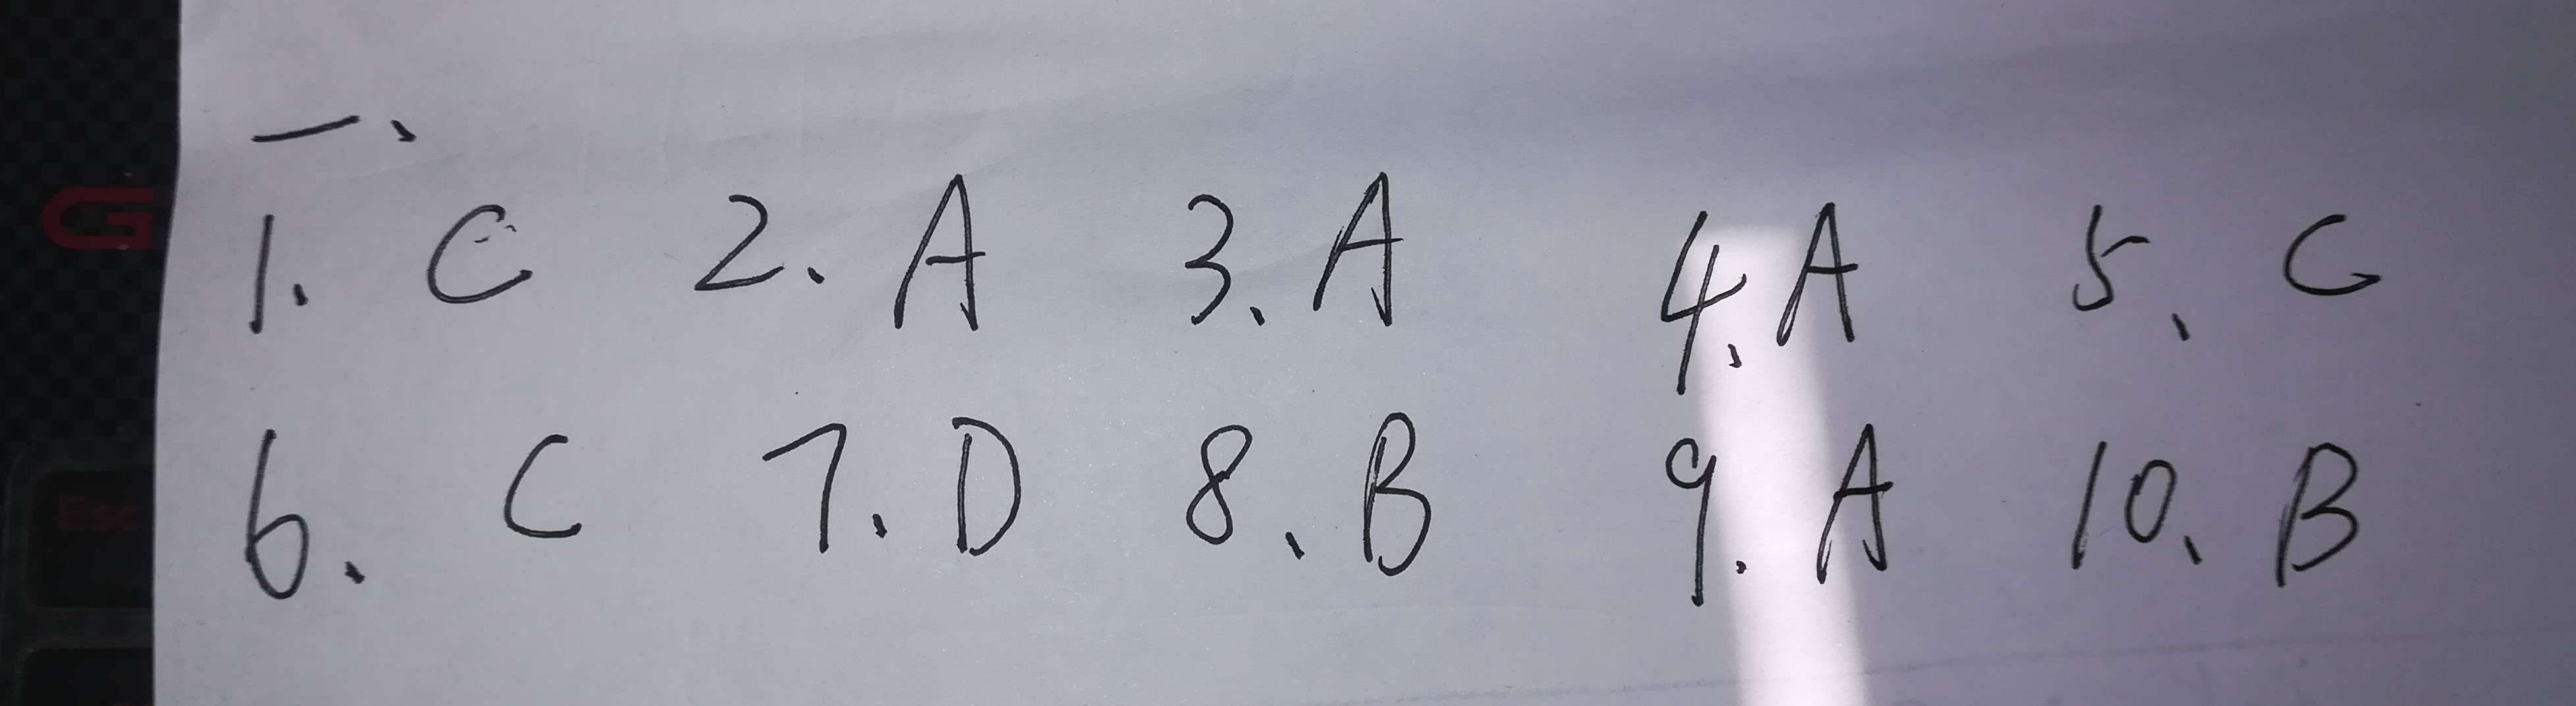 一、
1. C 2. A 3. A 4. A 5、 C
6. C 7. D 8、 B 9. A 10、 B
G
Esc